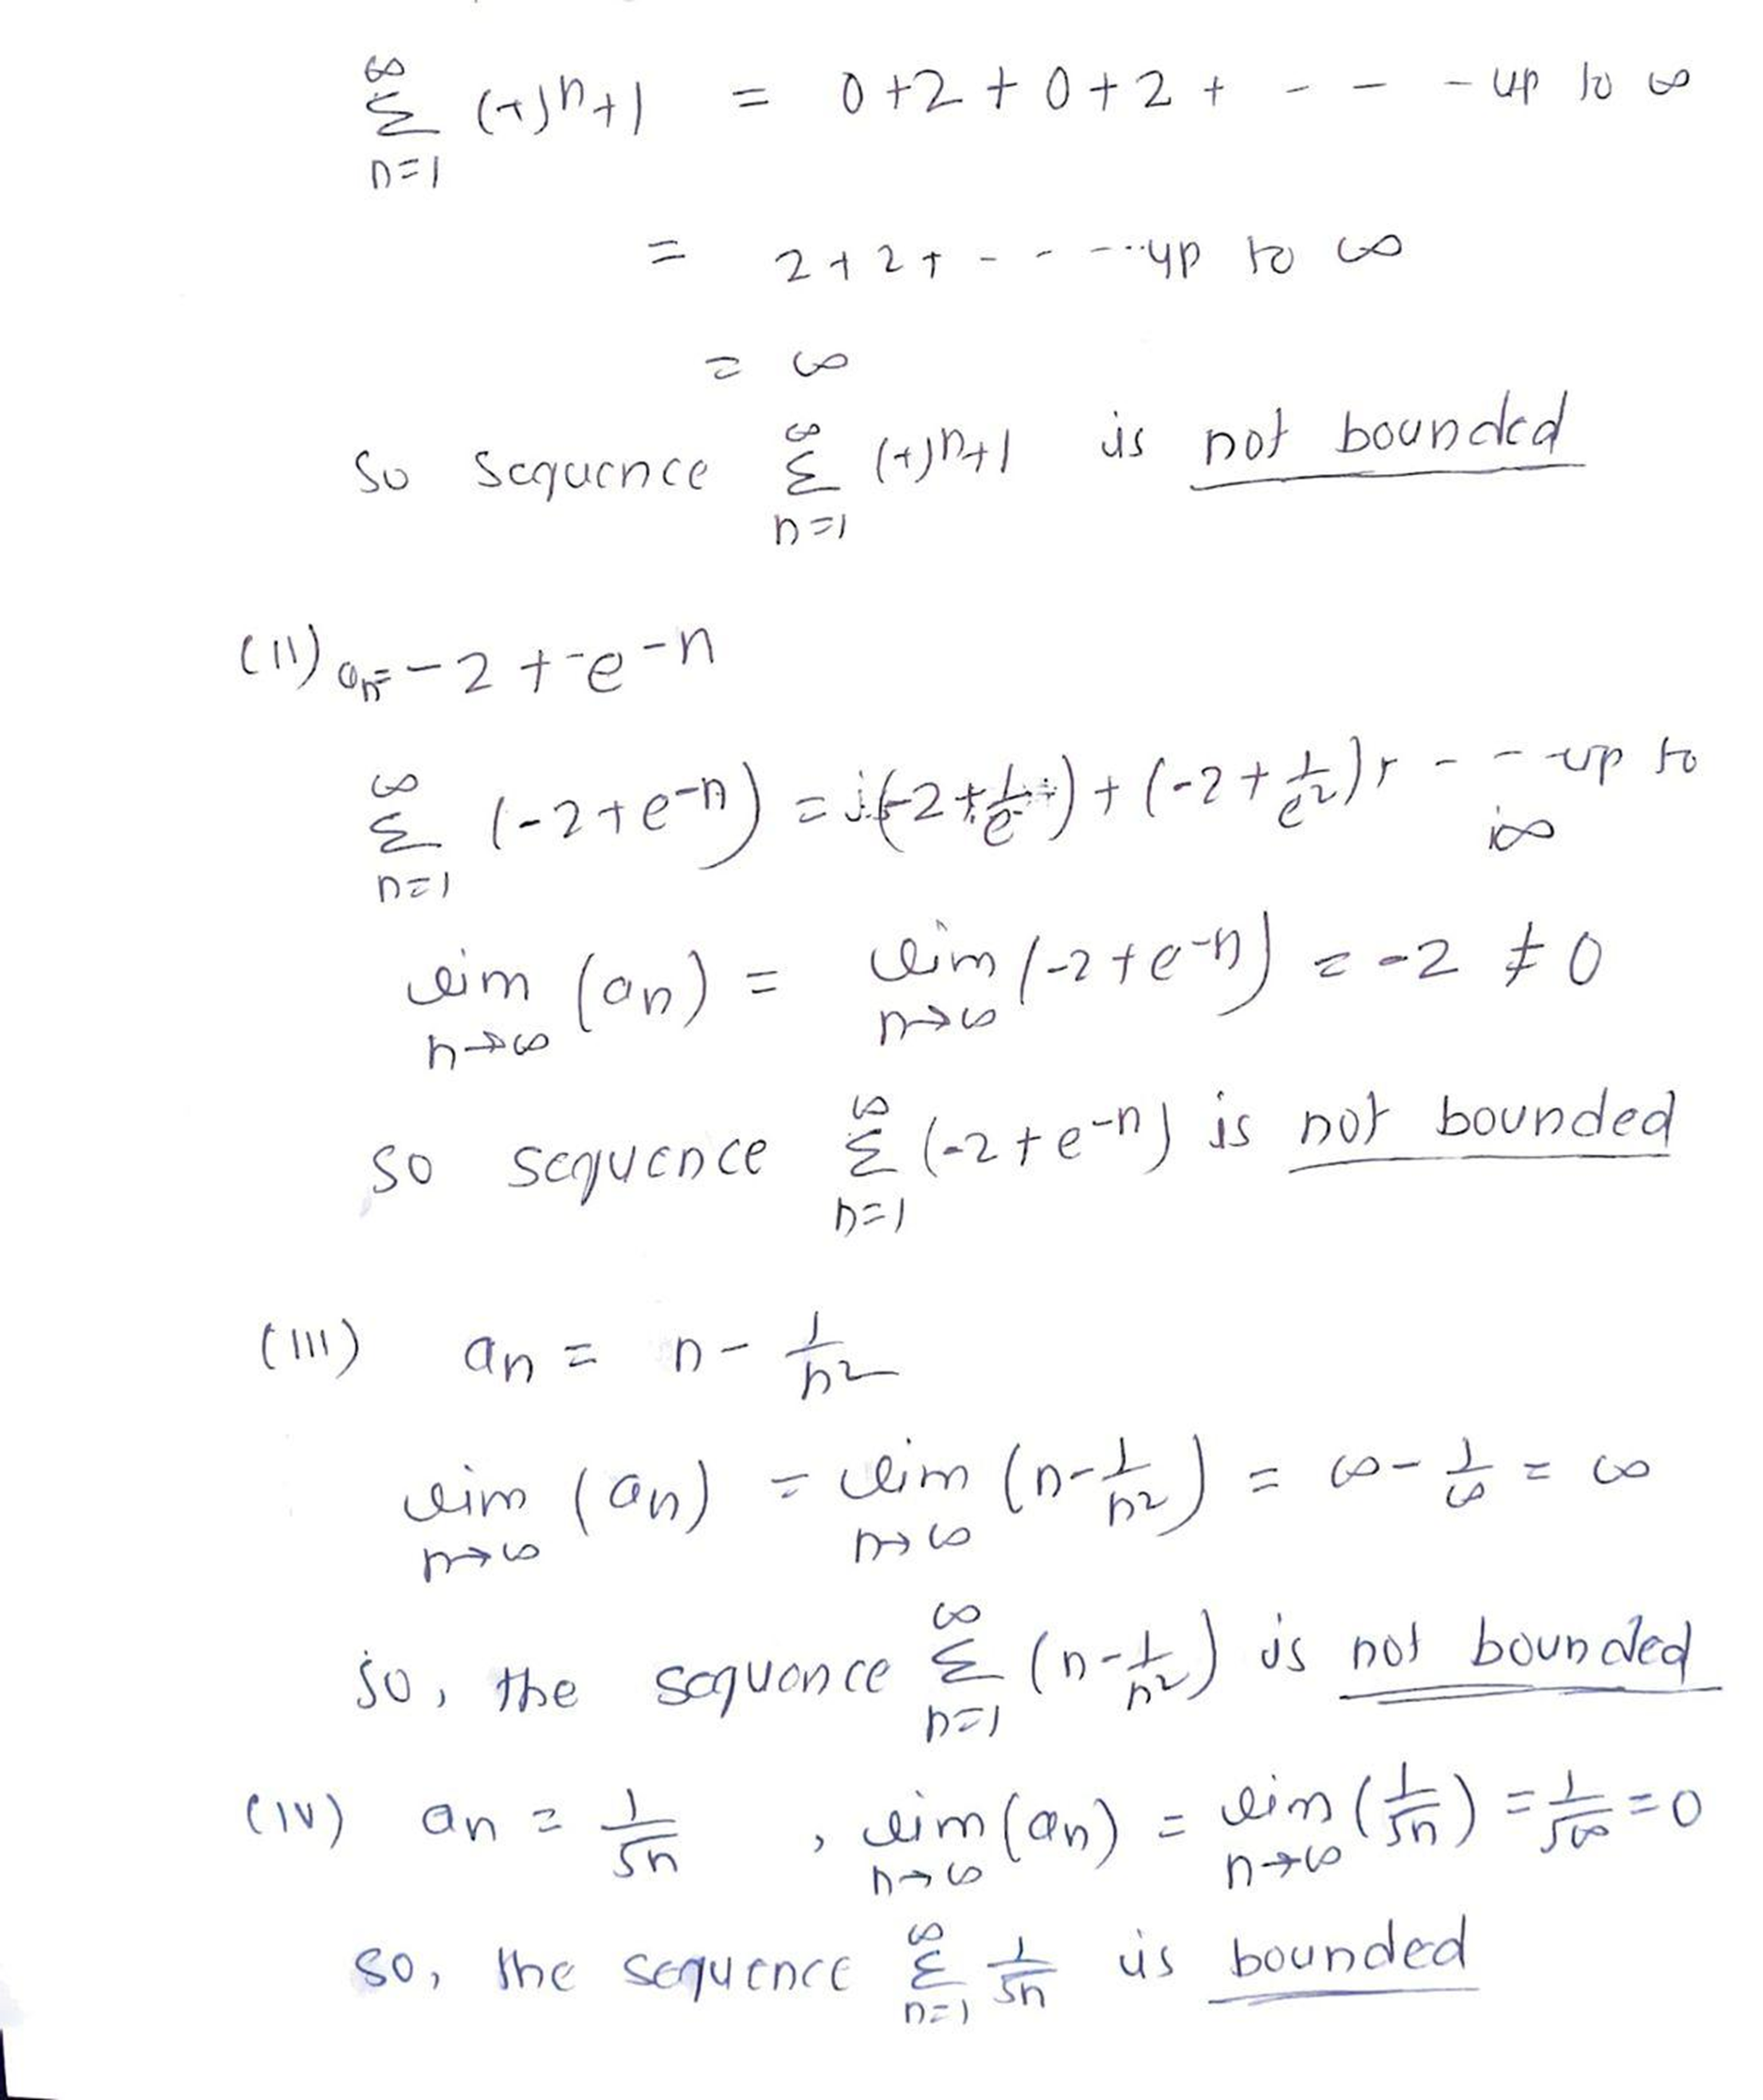 ∞ Σ n=1 (-1)ⁿ+1 = 0+2+0+2+ - - - up to ∞
= 2+2+ - - - ...up to ∞
= ∞
So sequence ∞ Σ n=1 (-1)ⁿ+1 is not bounded
(II) an= -2 + -e^-n
∞ Σ n=1 (-2+e^-n) = (-2+1/e) + (-2+1/e²)+ - - - up to ∞
lim n→∞ (an) = lim n→∞ (-2+e^-n) = -2 ≠ 0
So sequence ∞ Σ n=1 (-2+e^-n) is not bounded
(III) an = n - 1/n²
lim n→∞ (an) = lim n→∞ (n-1/n²) = ∞ - 1/∞ = ∞
so, the sequence ∞ Σ n=1 (n-1/n²) is not bounded
(IV) an = 1/√n , lim n→∞ (an) = lim n→∞ (1/√n) = 1/√∞ = 0
so, the sequence ∞ Σ n=1 1/√n is bounded